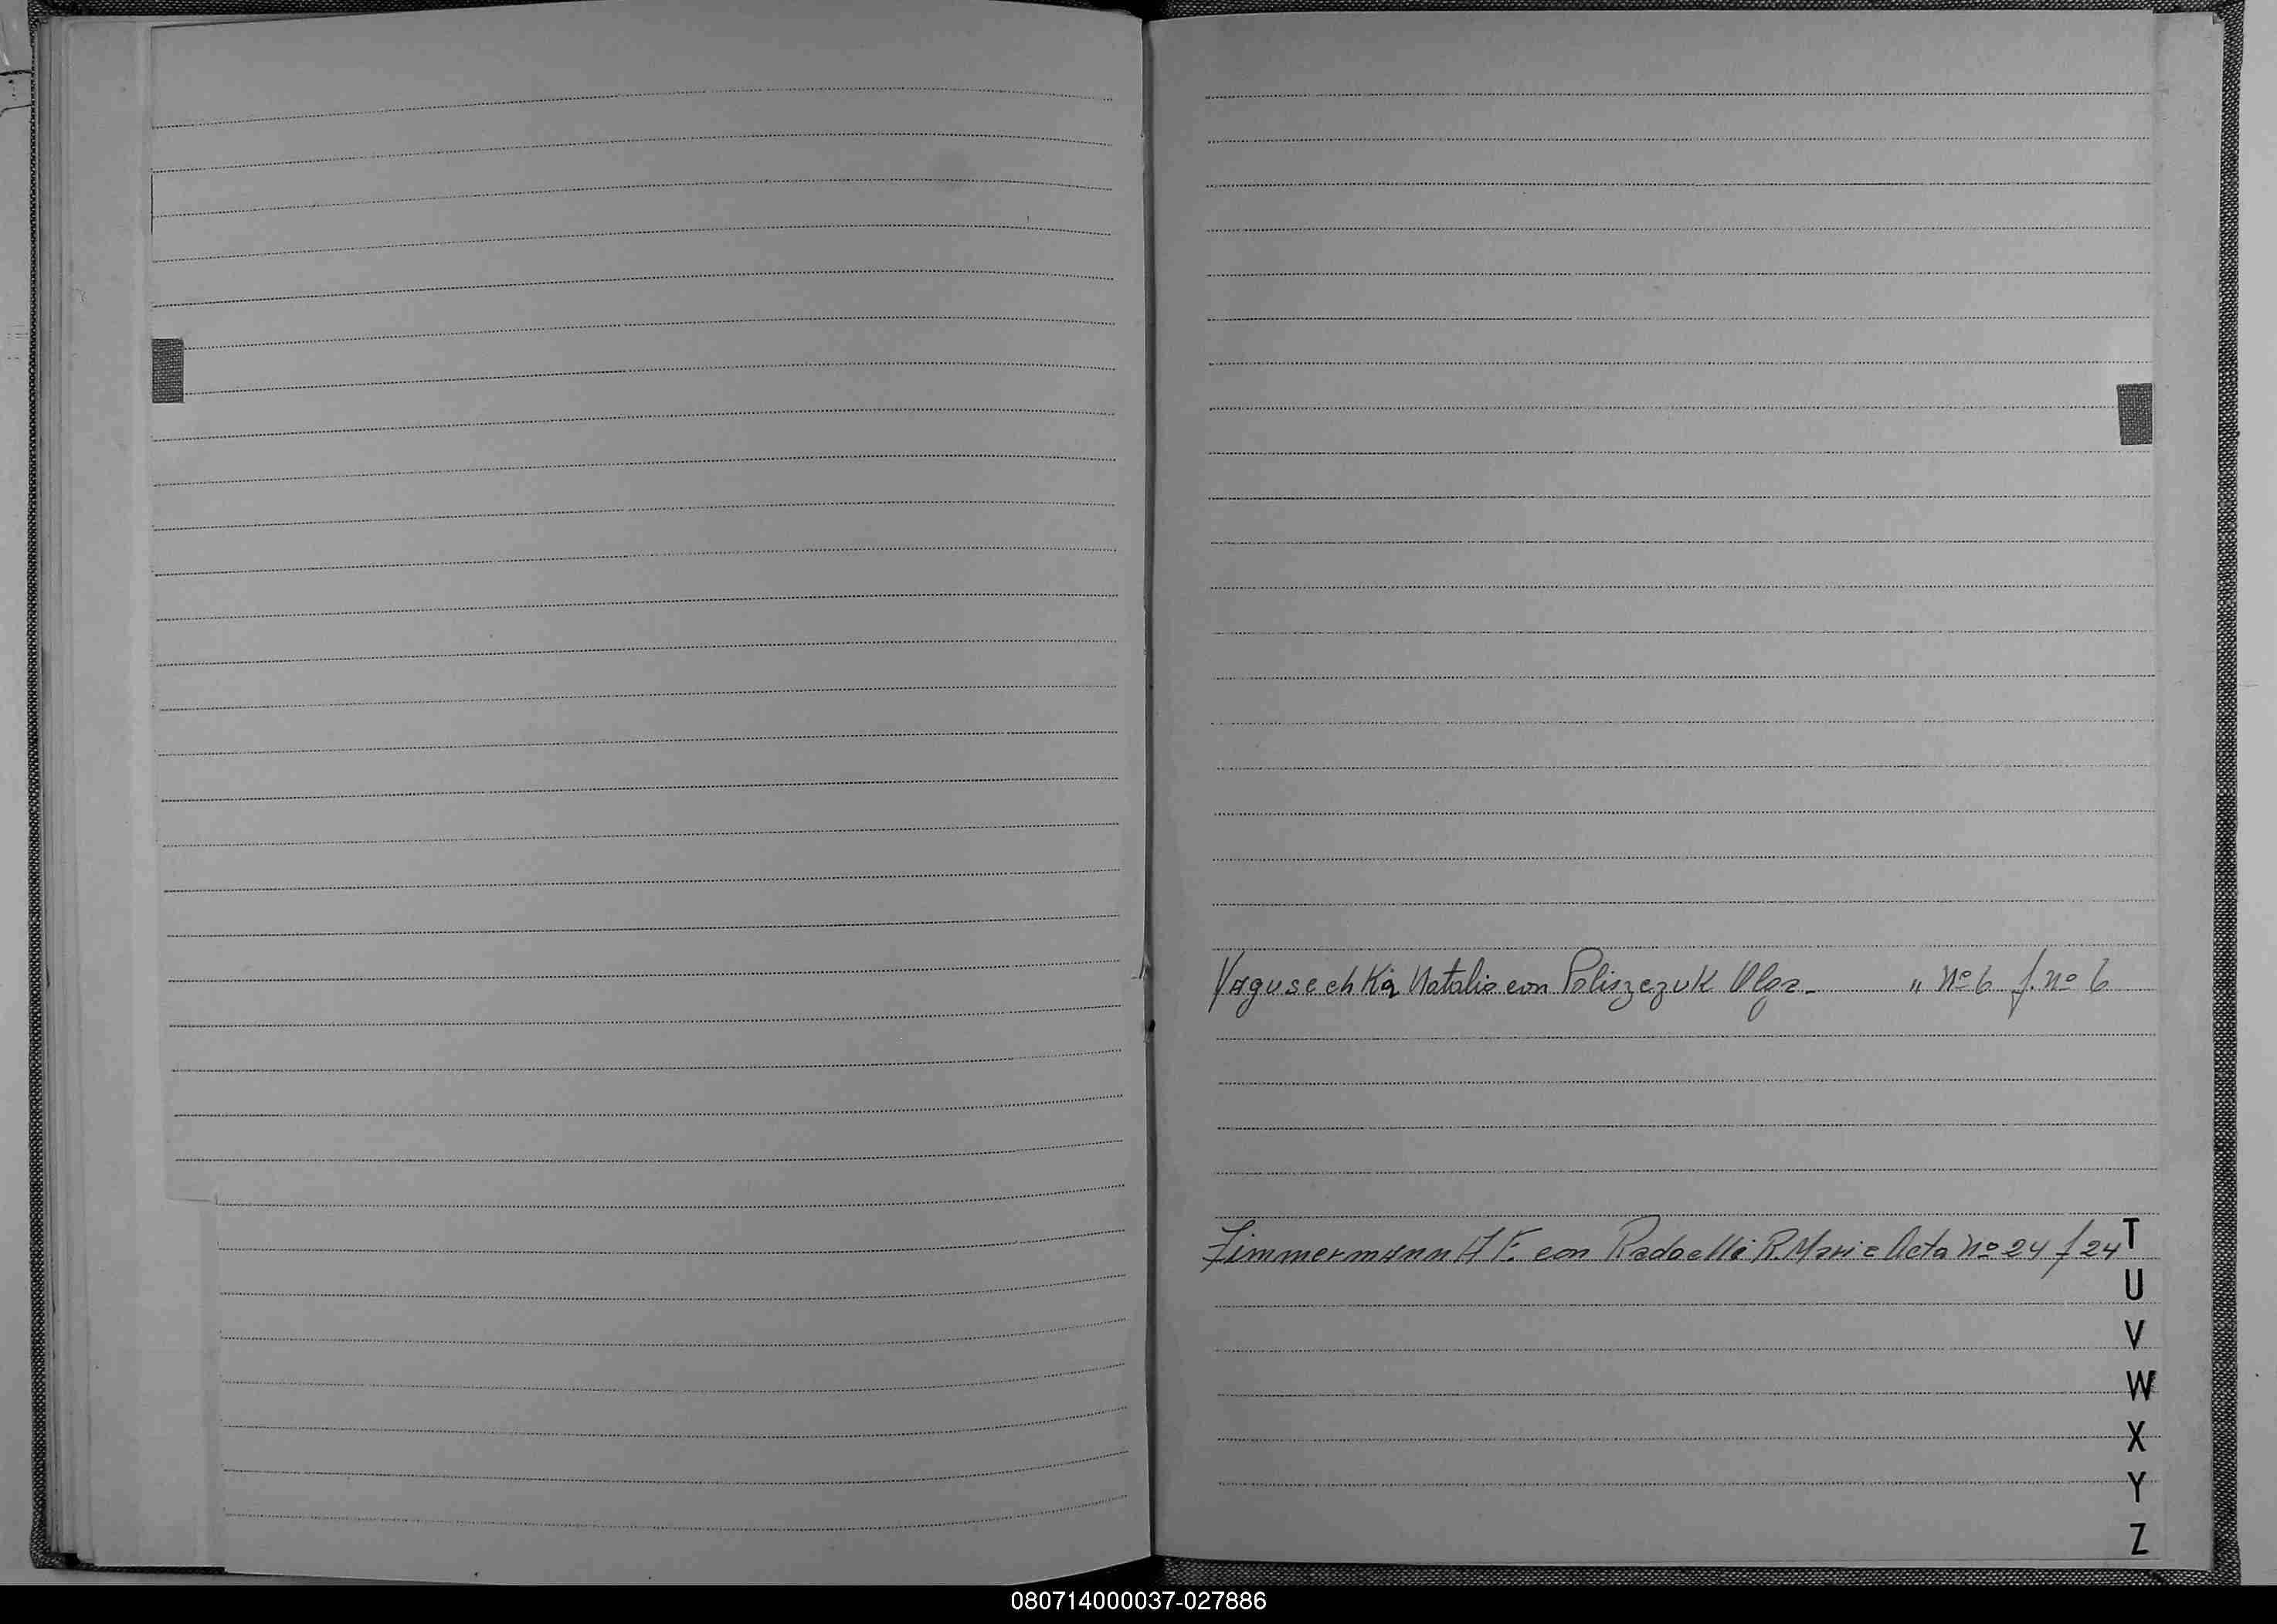 Yagusechkia Natalio con Poliszczuk Olga- " nº 6 f. nº 6
Zimmermann H F. con Radaelli R. Marie Acta nº 24 f 24
T
U
V
W
X
Y
Z
080714000037-027886